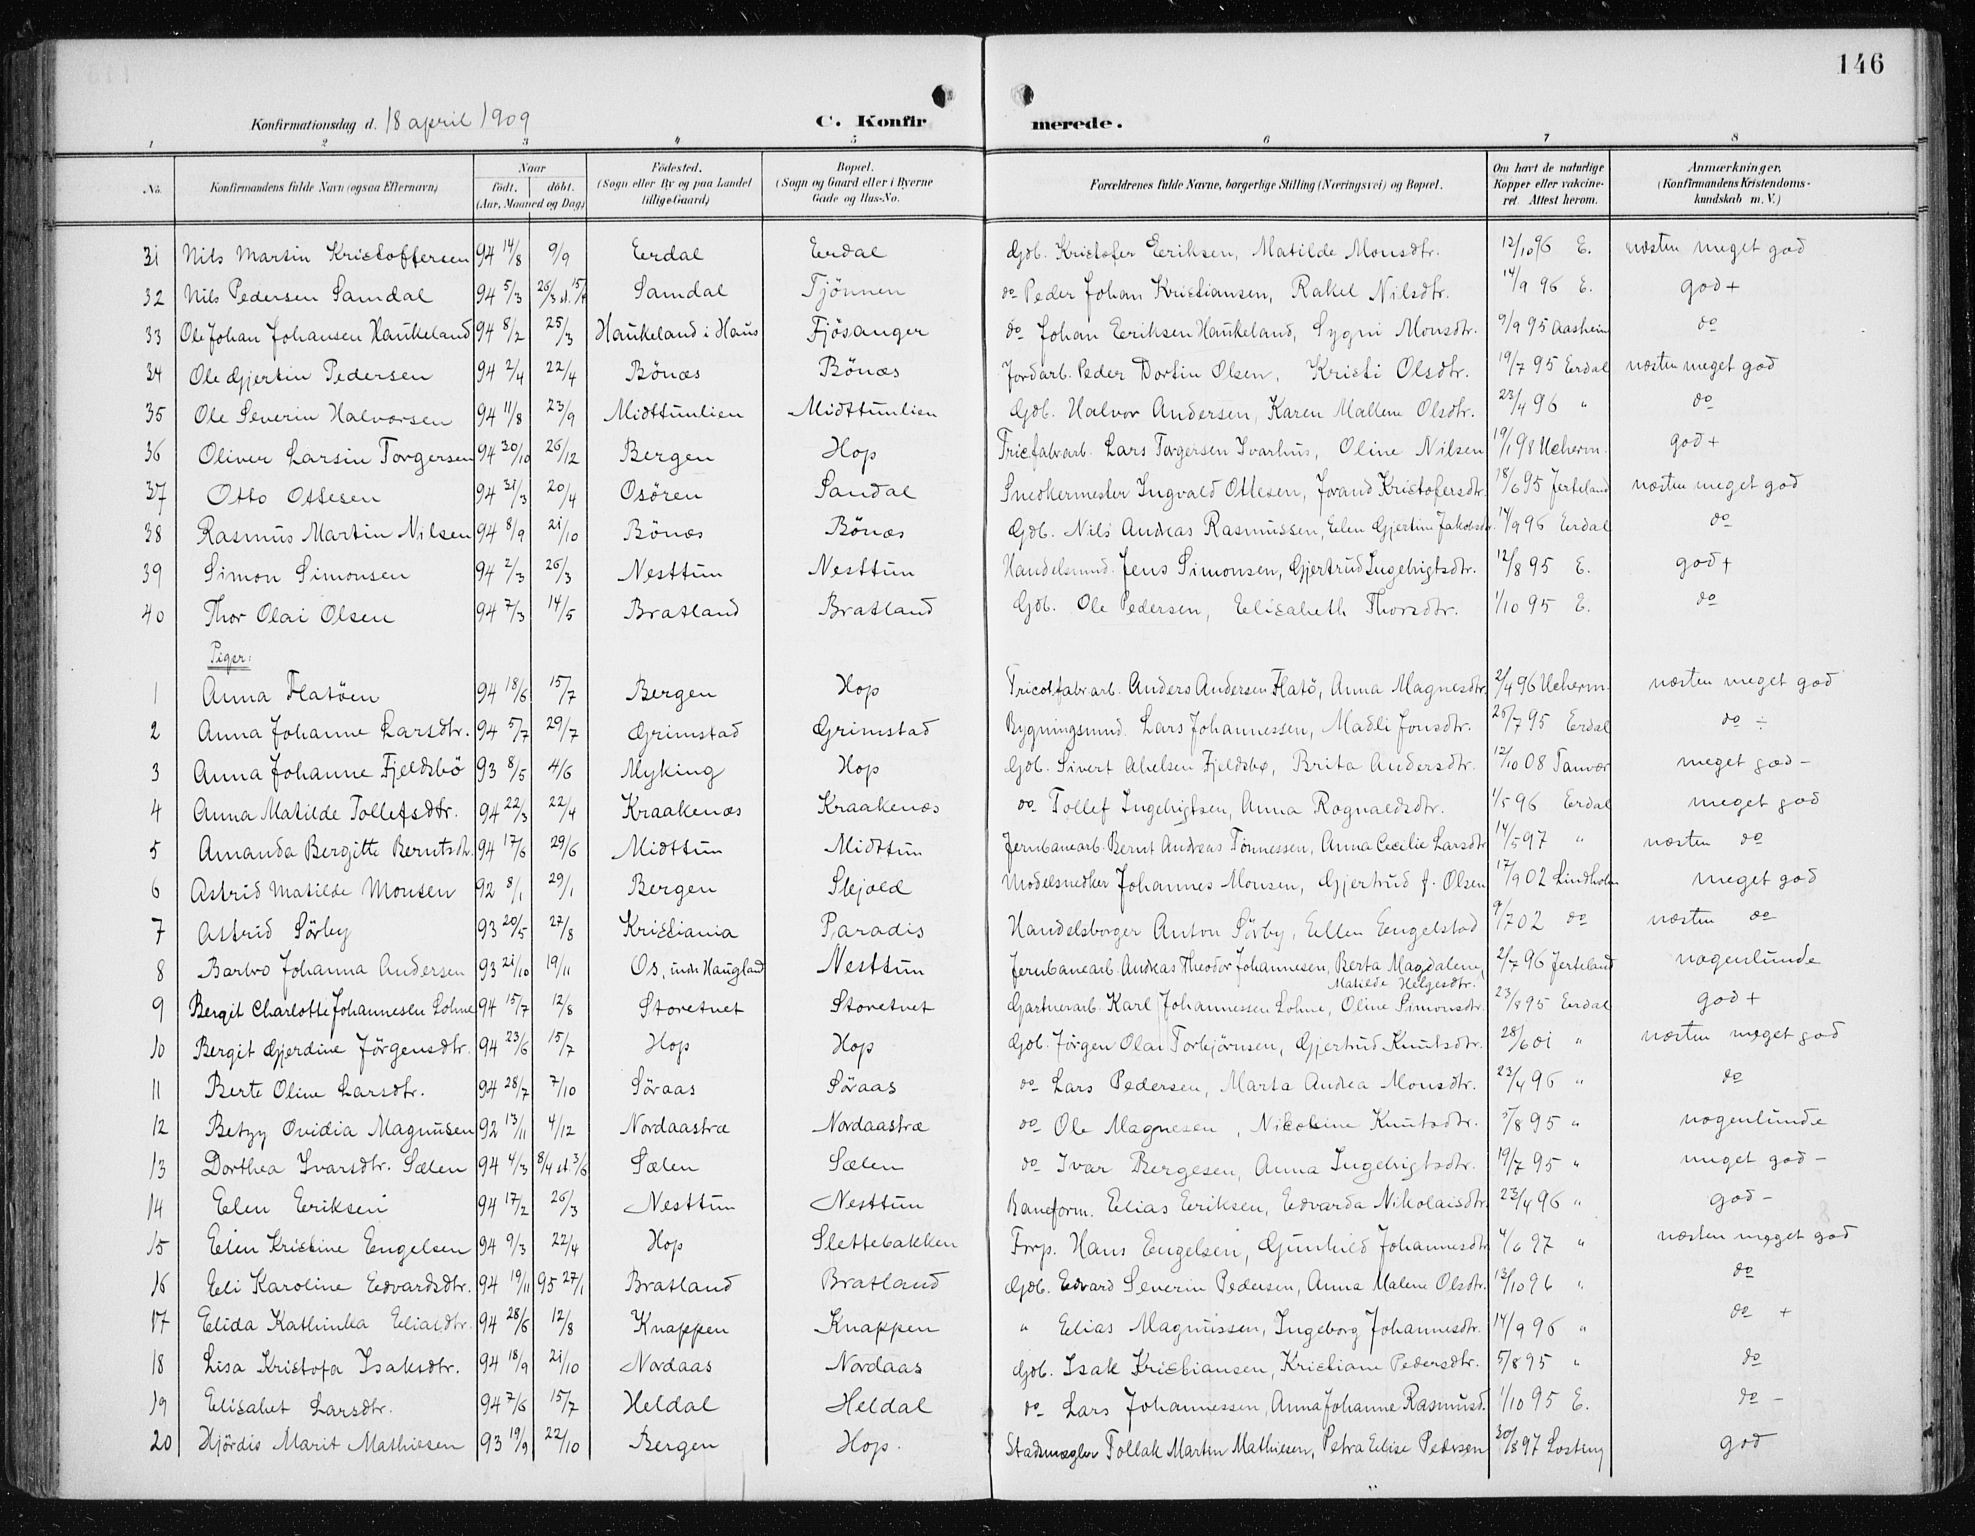 146
Konfirmationsdag d. 18 april 1909 C. Konfirmerede.
1 2 3 4 5 6 7 8
No. Konfirmandens fulde Navn (ogsaa Efternavn) Naar født. døbt. (Aar, Maaned og Dag) Fødested. (Sogn eller By og paa Landet tillige Gaard) Bopæl. (Sogn og Gaard eller i Byerne Gade og Hus-No. Forældrenes fulde Navne, borgerlige Stilling (Næringsvei) og Bopæl. Om havt de naturlige Kopper eller vakcineret. Attest herom. Anmærkninger. (Konfirmandens Kristendomskundskab m. V.)
31 Nils Martin Kristoffersen 94 14/8 9/9 Eerdal Eerdal Gdb. Kristofer Eeriksen, Matilde Monsdtr. 12/10 96 E. næsten meget god
32 Nils Pedersen Samdal 94 5/3 26/3 st. 15/4 Samdal Tjönnen do Peder Johan Kristiansen, Rakel Nilsdtr. 14/9 96 E. god +
33 Ole Johan Johansen Haukeland 94 8/2 25/3 Haukeland i Haus Fjösanger do Johan Eeriksen Haukeland, Sygni Monsdtr. 9/9 95 Aasheim do
34 Ole Gjertin Pedersen 94 2/4 22/4 Bönæs Bönæs Jordarb. Peder Dortin Olsen, Kristi Olsdtr. 19/7 95 Eerdal næsten meget god
35 Ole Severin Halvorsen 94 11/8 23/9 Midttunlien Midttunlien Gdb. Halvor Andersen, Karen Mallene Olsdtr. 23/4 96 " do
36 Oliver Larsin Torgersen 94 30/10 26/12 Bergen Hop Tricfabrarb. Lars Torgersen Ivarhus, Oline Nilsen 19/1 98 Ucherm. god +
37 Otto Ottesen 94 31/3 20/4 Osören Sandal Snedkermester Ingvald Ottesen, Jorand Kristofersdtr. 18/6 95 Jerteland næsten meget god
38 Rasmus Martin Nilsen 94 8/9 21/10 Bönæs Bönæs Gdb. Nils Andreas Rasmussen, Eelen Gjertine Jakobsdtr. 14/9 96 Eerdal do
39 Simon Simonsen 94 2/3 26/3 Nesttun Nesttun Handelsmnd. Jens Simonsen, Gjertrud Ingebrigtsdtr. 12/8 95 E. god +
40 Thor Olai Olsen 94 7/3 14/5 Bratland Bratland Gdb. Ole Pedersen, Eelisabeth Thorsdtr. 1/10 95 E. do
Piger:
1 Anna Flatöen 94 18/6 15/7 Bergen Hop Tricotfabrarb. Anders Andersen Flatö, Anna Magnesdtr. 2/4 96 Ucherm. næsten meget god
2 Anna Johanne Larsdtr. 94 5/7 29/7 Grimstad Grimstad Bygningsmnd. Lars Johannessen, Madli Jonsdtr. 26/7 95 Eerdal do ÷
3 Anna Johanne Fjeldsbö 93 8/5 4/6 Myking Hop Gdb. Sivert Abelsen Fjeldsbø, Brita Andersdtr. 12/10 08 Tanvær meget god -
4 Anna Matilde Tollefsdtr. 94 22/3 22/4 Kraakenæs Kraakenæs do Tollef Ingebrigtsen, Anna Rognaldsdtr. 1/5 96 Eerdal meget god
5 Amanda Bergitte Berntsdtr. 94 17/6 29/6 Midttun Midttun Jernbanearb. Bernt Andreas Tönnessen, Anna Cecilie Larsdtr 14/5 97 " næsten do
6 Astrid Matilde Monsen 92 8/1 29/1 Bergen Skjold Modelsnedker Johannes Monsen, Gjertrud f. Olsen 17/9 02 Lindholm meget god
7 Astrid Sörby 93 20/5 27/8 Kristiania Paradis Handelsborger Anton Sörby, Eellen Eengelstad 9/7 02 do næsten do
8 Barbro Johanna Andersen 93 21/10 19/11 Os, indr. Haugland Nesttun Jernbanearb. Andreas Theodor Johannesen, Berta Magdalene, Matilde Helgesdtr. 2/7 96 Jerteland nogenlunde
9 Bergit Charlotte Johannesen Lohne 94 15/7 12/8 Storetvet Storetvet Gartnerarb. Karl Johannessen Lohne, Oline Simonsdtr. 23/8 95 Eerdal god +
10 Bergit Gjerdine Jörgensdtr. 94 23/6 15/7 Hop Hop Gdb. Jörgen Olai Torbjörnsen, Gjertrud Knutsdtr. 28/6 01 " næsten meget god
11 Berte Oline Larsdtr. 94 28/7 7/10 Söraas Söraas do Lars Pedersen, Marta Andrea Monsdtr. 23/4 96 " do
12 Betzy Ovidia Magnusen 92 13/11 4/12 Nordaastræ Nordaastræ do Ole Magnesen, Nikoline Knutsdtr. 5/8 95 " nogenlunde
13 Dorthea Ivarsdtr. Sælen 94 4/3 8/4 st. 3/6 Sælen Sælen do Ivar Bergesen, Anna Ingebrigtsdtr. 19/7 95 " meget god -
14 Eelen Eeriksen 94 17/2 26/3 Nesttun Nesttun Baneform. Eelias Eeriksen, Eedvarda Nikolaisdtr. 23/4 96 " god -
15 Eelen Kristine Engelsen 94 9/3 22/4 Hop Slettebakken Forp. Hans Engelsen, Gunhild Johannesdtr 4/6 97 " næsten meget god
16 Eeli Karoline Eedvardsdtr. 94 19/11 95 27/1 Bratland Bratland Gdb. Edvard Severin Pedersen, Anna Malene Olsdtr. 13/10 96 " do
17 Eelida Kathinka Eeliasdtr. 94 28/6 12/8 Knappen Knappen " Eelias Magnussen, Ingeborg Johannesdtr. 14/9 96 " do +
18 Lisa Kristofa Isaksdtr. 94 18/9 21/10 Nordaas Nordaas Gdb. Isak Kristiansen, Kristiane Pedersdtr. 5/8 95 " do
19 Elisabet Larsdtr. 94 7/6 15/7 Heldal Heldal do Lars Johannessen, Anna Johanne Rasmusd. 1/10 95 E. do -
20 Hjördis Marit Mathiesen 93 19/9 22/10 Bergen Hop. Stadsmægler Tollak Martin Mathiesen, Petra Eelise Pedersen 30/8 97 Losting god